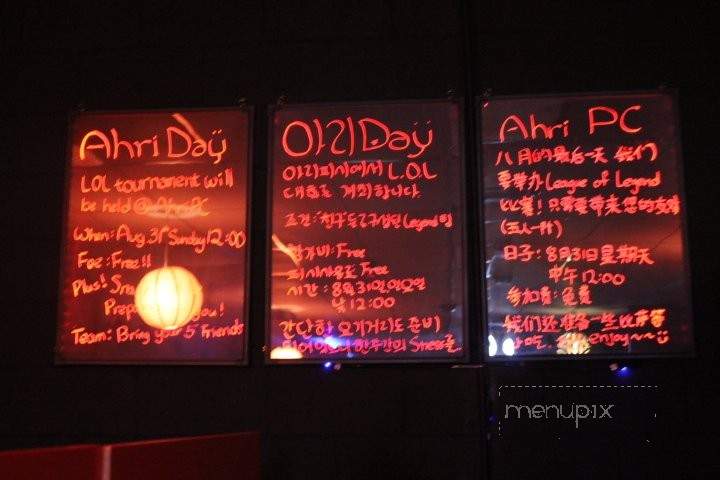 Ahri Day
LOL tournament will
be held @ Ahri PC
When: Aug 31st Sunday 12:00
Fee: Free!!
Plus! Sna
Prepa you!
Team: Bring your 5 Friends
아리 Day
아리피시에서 L.O.L
대회를 개최합니다.
조건: 친구들로 구성된
참가비: Free
피시사용료 Free
시간: 8월 31일 일요일
낮 12:00
간단한 요기거리도 준비
Stress를
Ahri PC
八月的最后一天 我们
要举办 League of Legend
比赛! 只需要带来您的
(五人一队)
日子: 8月31日 星期天
中午 12:00
参加费: 免费
我们还准备一些
小吃. enjoy~~
menupix